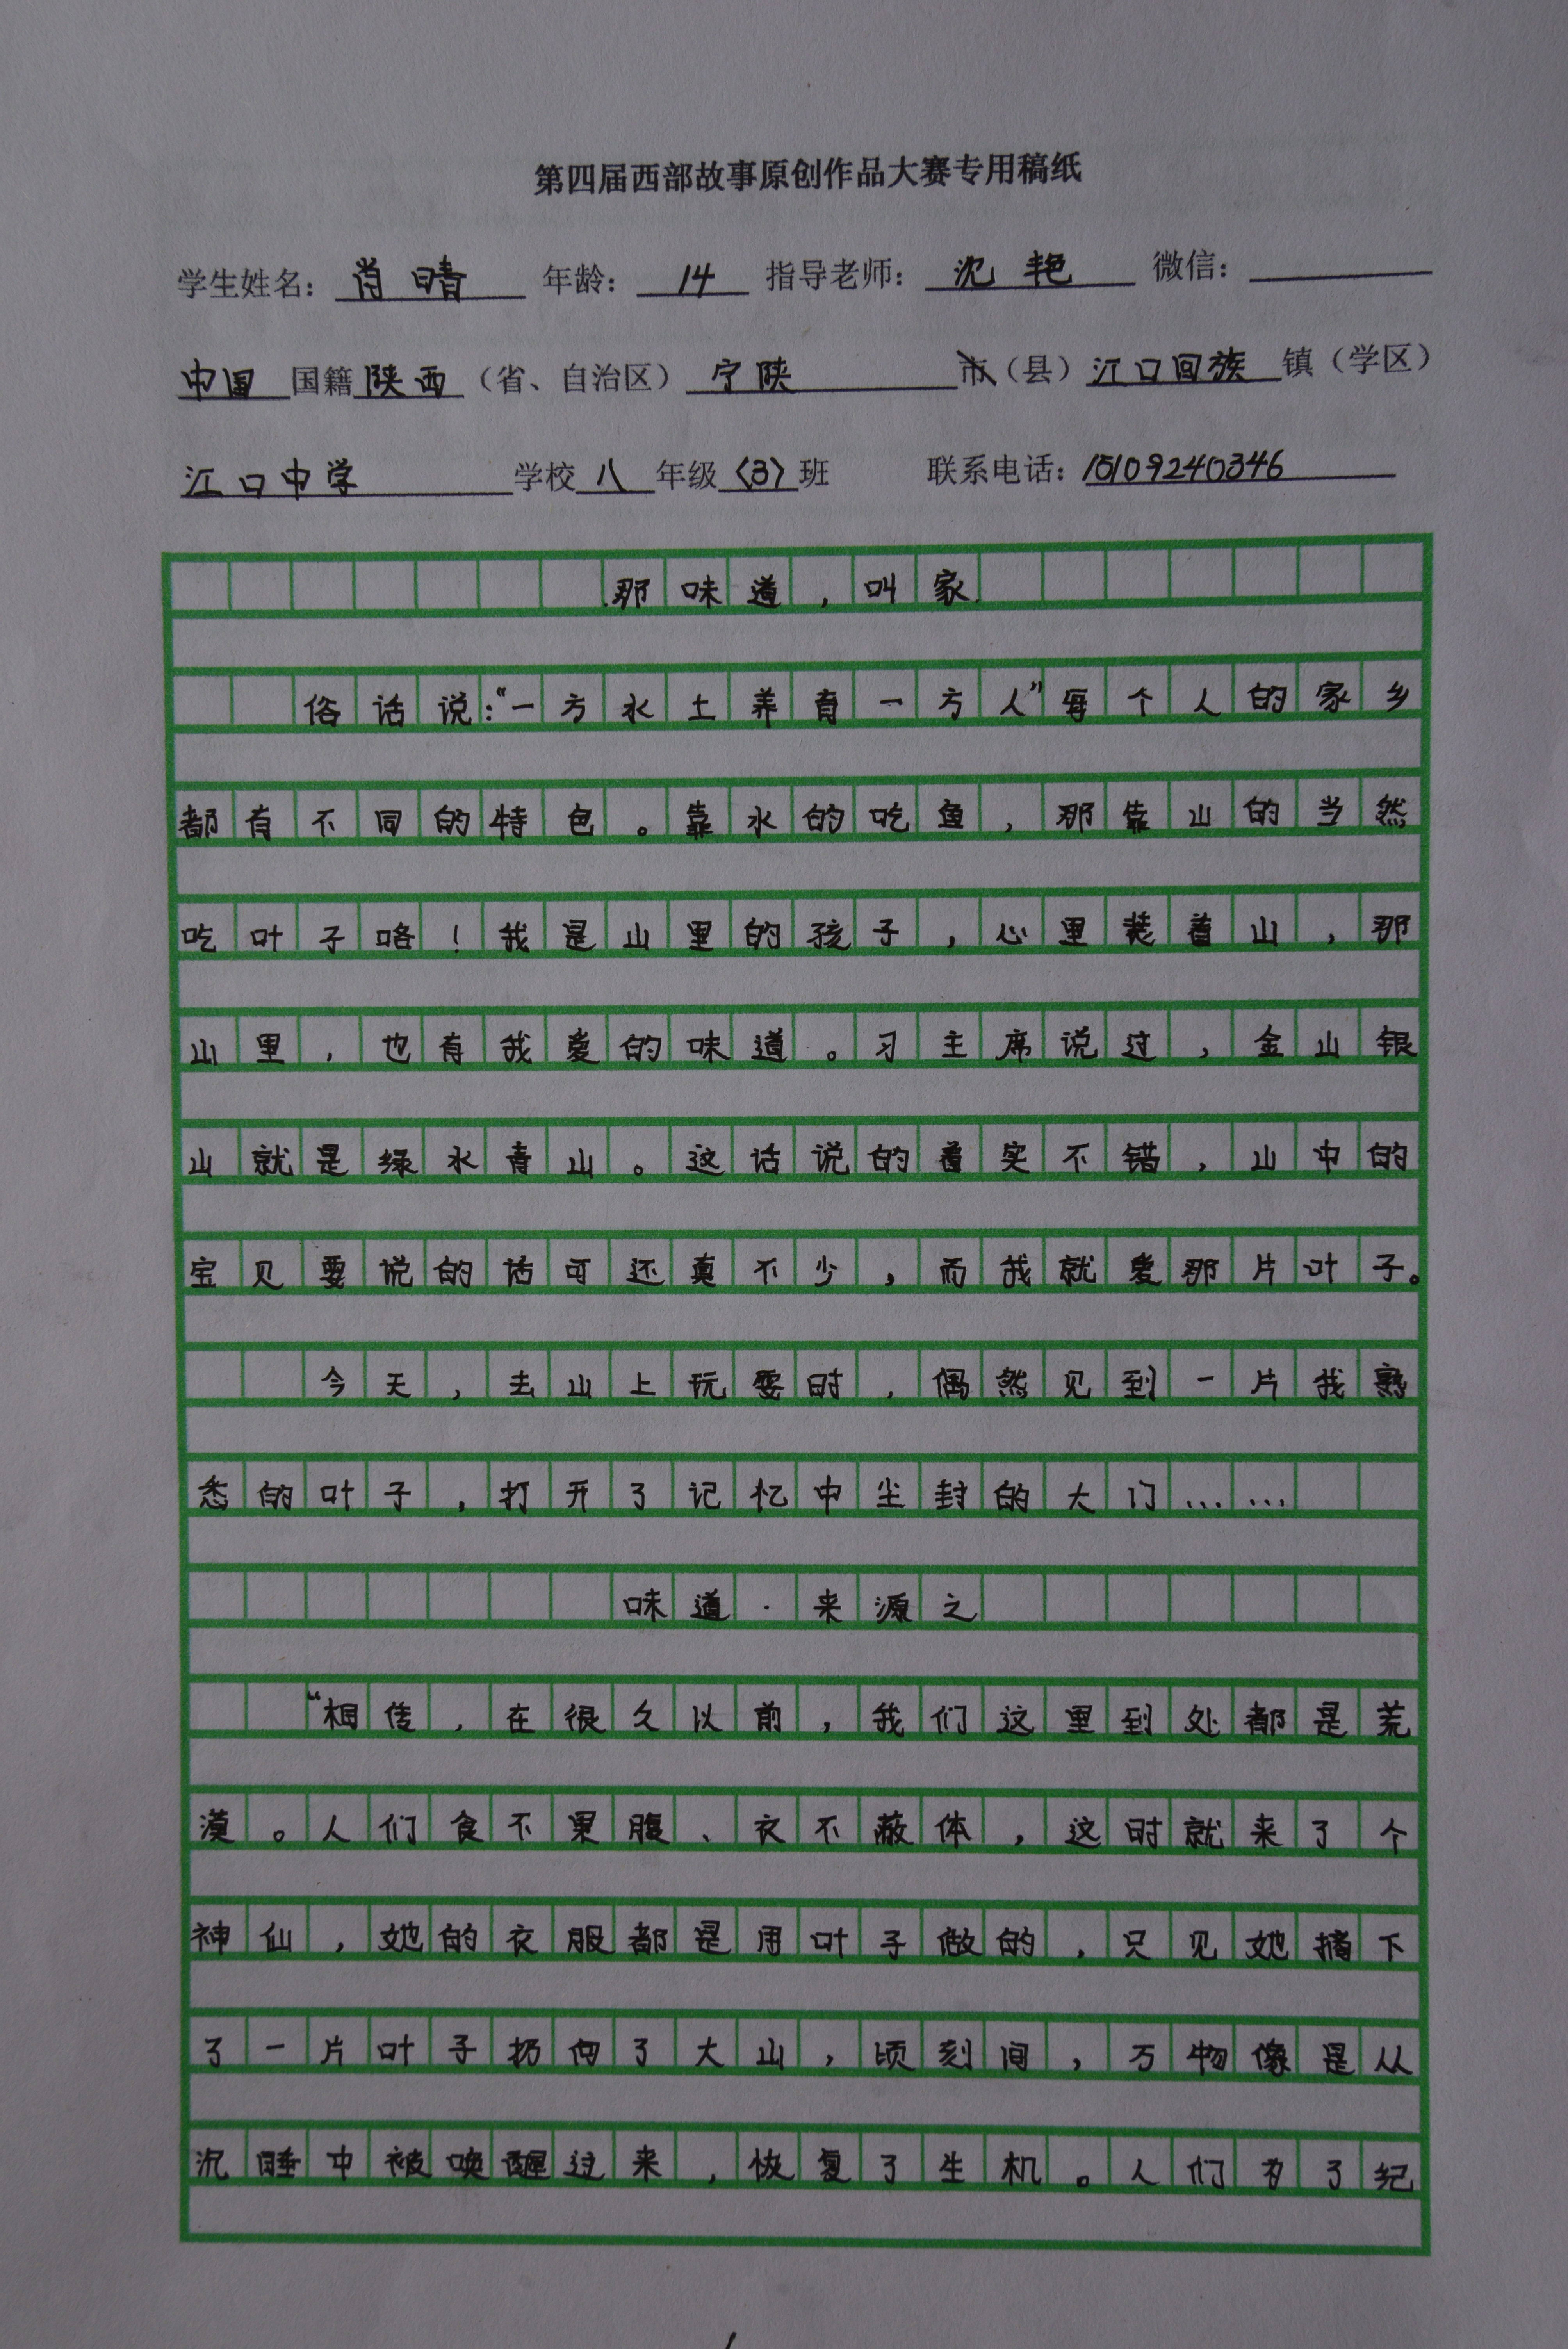 第四届西部故事原创作品大赛专用稿纸
学生姓名：肖晴 年龄：14 指导老师：沈艳 微信：
中国国籍陕西（省、自治区）宁陕市（县）江口回族镇（学区）
江口中学学校八年级〈3〉班 联系电话：15109240346
那味道，叫家
俗话说：“一方水土养育一方人”每个人的家乡
都有不同的特色。靠水的吃鱼，那靠山的当然
吃叶子咯！我是山里的孩子，心里装着山，那
山里，也有我爱的味道。习主席说过，金山银
山就是绿水青山。这话说的着实不错，山中的
宝贝要说的话可还真不少，而我就爱那片叶子。
今天，去山上玩耍时，偶然见到一片我熟
悉的叶子，打开了记忆中尘封的大门……
味道·来源之
“相传，在很久以前，我们这里到处都是荒
漠。人们食不果腹、衣不蔽体，这时就来了个
神仙，她的衣服都是用叶子做的，只见她摘下
了一片叶子扔向了大山，顷刻间，万物像是从
沉睡中被唤醒过来，恢复了生机。人们为了纪